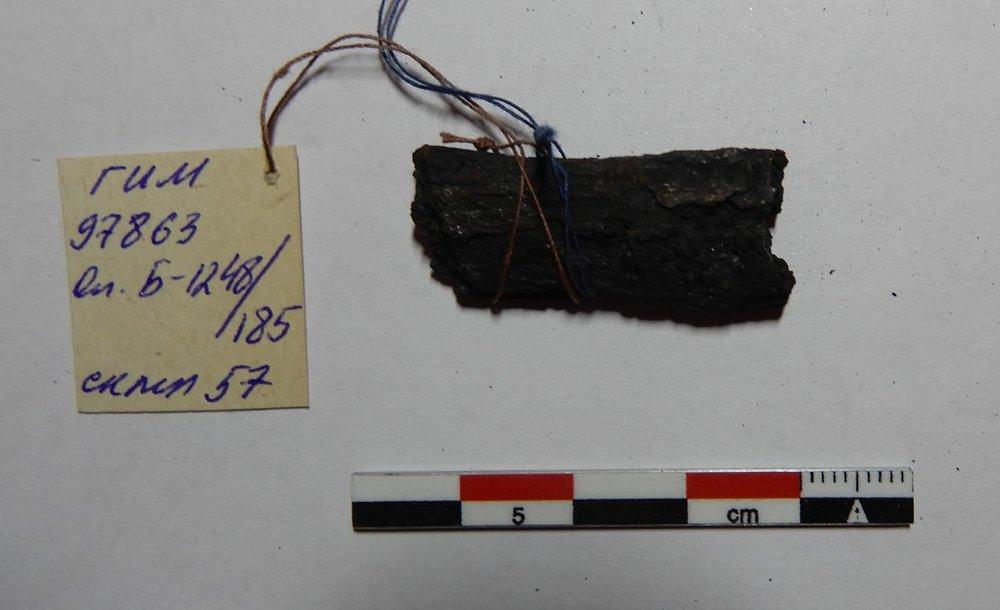 ГИМ
97863
оп. Б-1248/
/185
склеп 57
5 cm